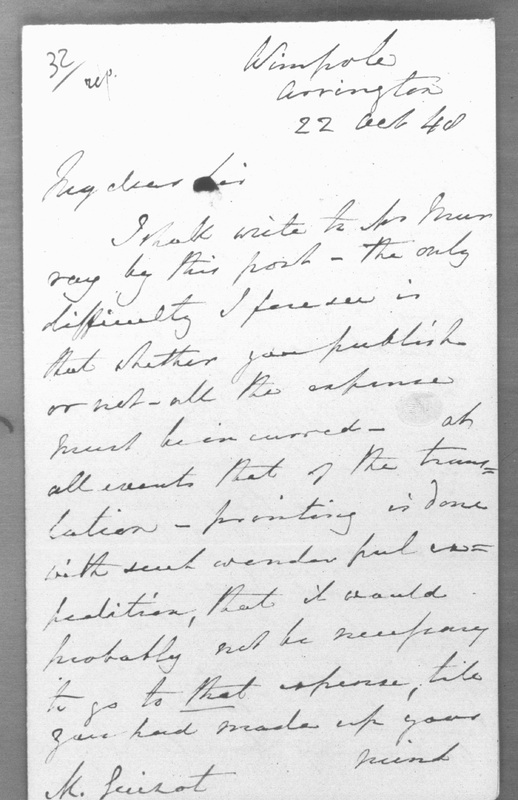 32/ rep.
Wimpole
Arrington
22 Oct 48
My dear Sir
I shall write to Mr Mur
ray by this post – the only
difficulty I foresee is
that whether you publish
or not – all the expense
must be incurred – at
all events that of the trans=
lation – printing is done
with such wonderful ex=
pedition, that it would
probably not be necessary
to go to that expense, till
you had made up your
mind
M. Guizot